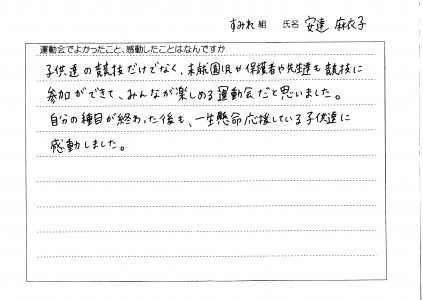 すみれ 組 氏名 安達 麻衣子
運動会でよかったこと、感動したことはなんですか
子供達の競技だけでなく、未就園児や保護者や先生達も競技に
参加ができて、みんなが楽しめる運動会だと思いました。
自分の種目が終わった後も、一生懸命応援している子供達に
感動しました。